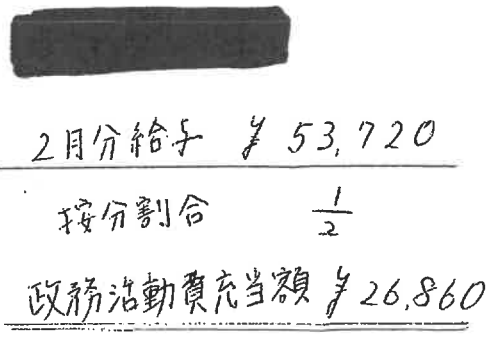 2月分給与 ¥53,720
按分割合 1/2
政務活動費充当額 ¥26,860